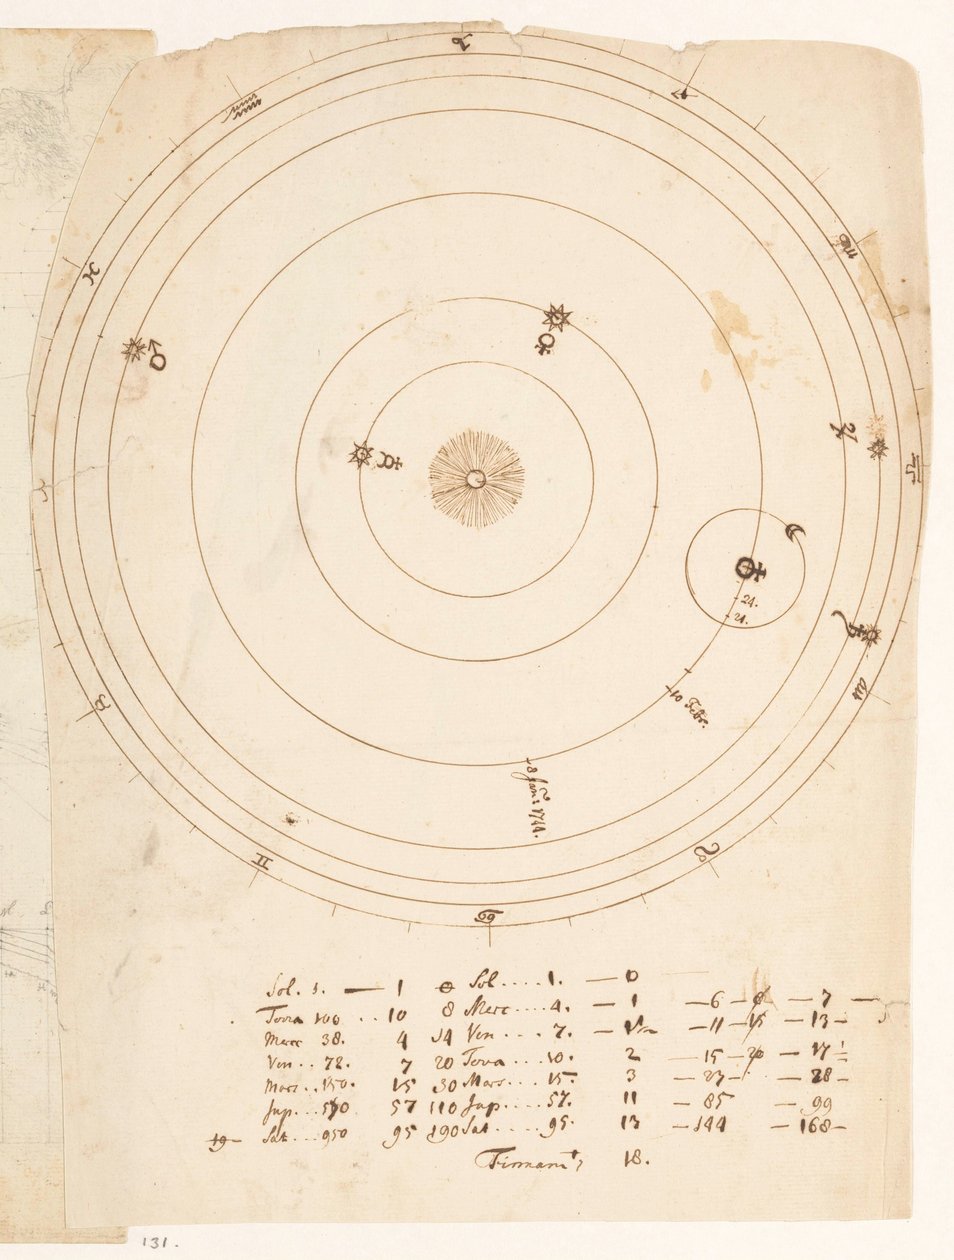 ♑
♐
♒
♏
♓
♂
♀
☿
♃
♎
♁
24.
21.
♄
♍
10 Febr.
8 Jan: 1744.
♉
♌
♊
♋
Sol. 1. — 1 0 Sol .... 1. — 0
Terra 100 .. 10 8 Merc .... 4. — 1 — 6 — 8 — 7 —
Merc 38. 4 14 Ven .... 7. — 11 — 15 — 13 —
Ven .. 72. 7 20 Terra ... 10. 2 — 15 — 20 — 17 1/2
Mars .. 150. 15 30 Mars ... 15. 3 — 27 — 28 —
Jup. .. 570 57 110 Jup. .... 57. 11 — 85 — 99
19 — Sat ... 950 95 190 Sat .... 95. 13 — 144 — 168 —
Firmamt 18.
131.